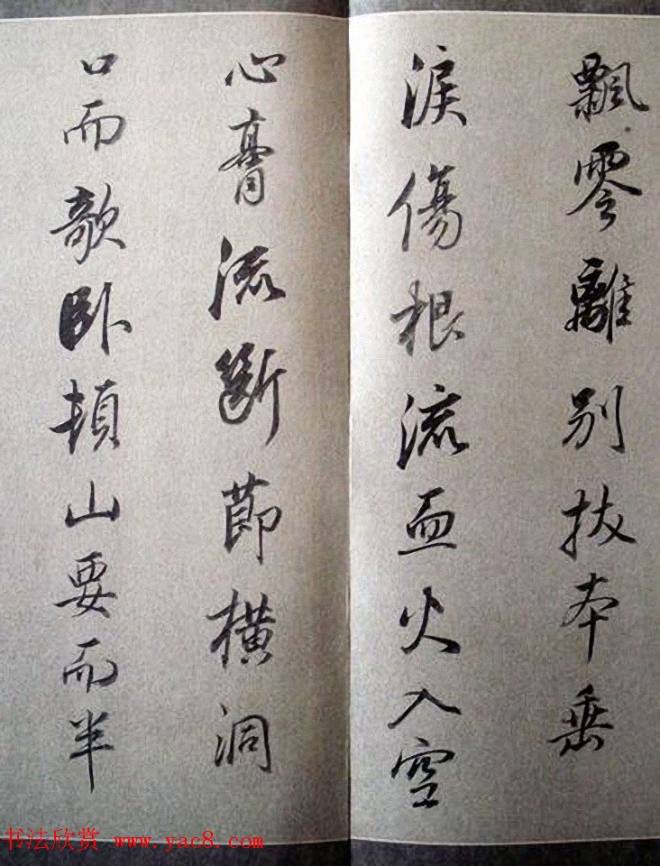 飄零離別拔本垂
淚傷根流血火入空
心膏流斷節橫洞
口而欹卧頓山要而半
书法欣赏 www.yac8.com